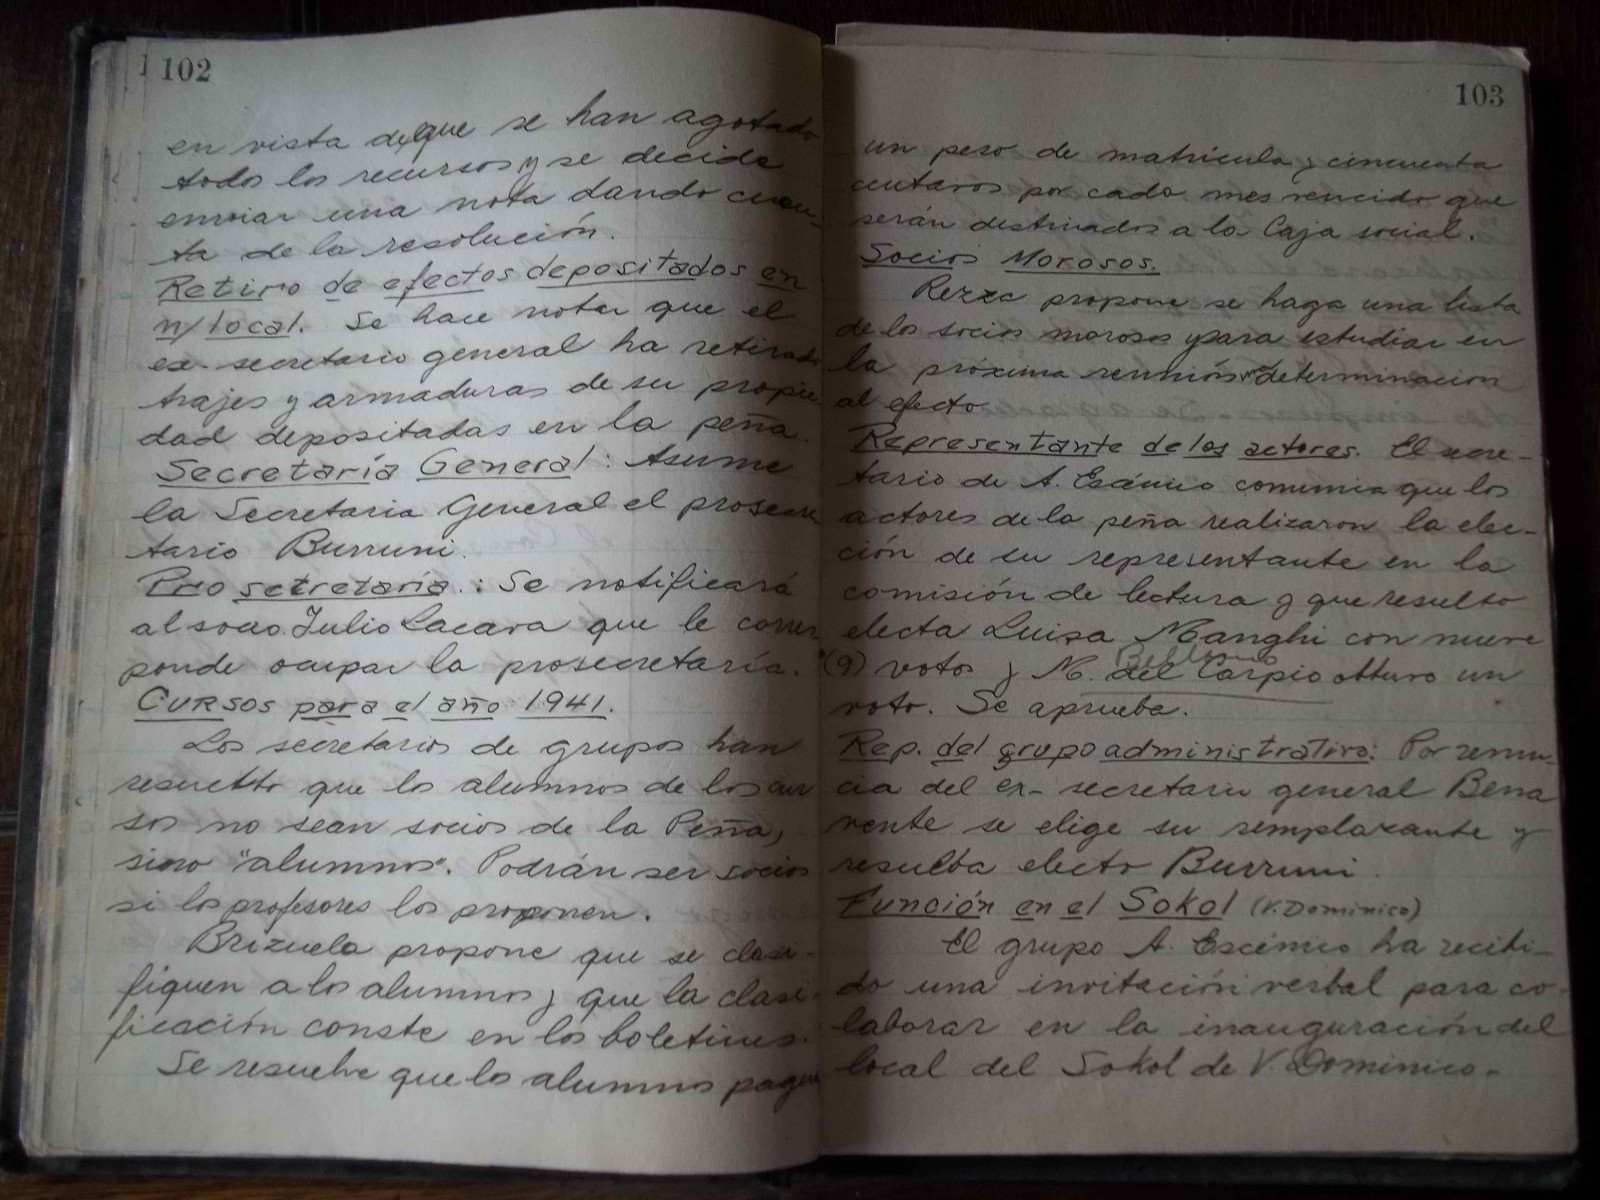 102
en vista de que se han agotado
todos los recursos y se decide
enviar una nota dando cuen-
ta de la resolución.
Retiro de efectos depositados en
n/ local. Se hace notar que el
ex-secretario general ha retirado
trajes y armaduras de su propie-
dad depositadas en la peña.
Secretaría General: Asume
la Secretaria General el prosecre
tario Burruni.
Pro secretaría.: Se notificará
al socio Julio Lacava que le corres
ponde ocupar la prosecretaría.
Cursos para el año 1941.
Los secretarios de grupos han
resuelto que los alumnos de los cur
sos no sean socios de la Peña,
sino "alumnos". Podrán ser socios
si los profesores los proponen.
Brizuela propone que se clasi-
fiquen a los alumnos y que la clasi-
ficación conste en los boletines.
Se resuelve que los alumnos paguen
103
un peso de matrícula y cincuenta
centavos por cada mes vencido que
serán destinados a la Caja social.
Socios Morosos.
propone se haga una lista
de los socios morosos para estudiar en
la próxima reunión una determinacion
al efecto
Representante de los actores. El secre-
tario de A. Escénico comunica que los
actores de la peña realizaron la elec-
ción de su representante en la
comisión de lectura y que resulto
electa Luisa Manghi con nueve
(9) votos y N. del Carpio obtuvo un
voto. Se aprueba.
Rep. del grupo administrativo: Por renun-
cia del ex-secretario general Bena
vente se elige su remplazante y
resulta electo Burruni.
Función en el Sokol (V. Dominico)
El grupo A. Escénico ha recibi-
do una invitación verbal para co-
laborar en la inauguración del
local del Sokol de V. Dominico.